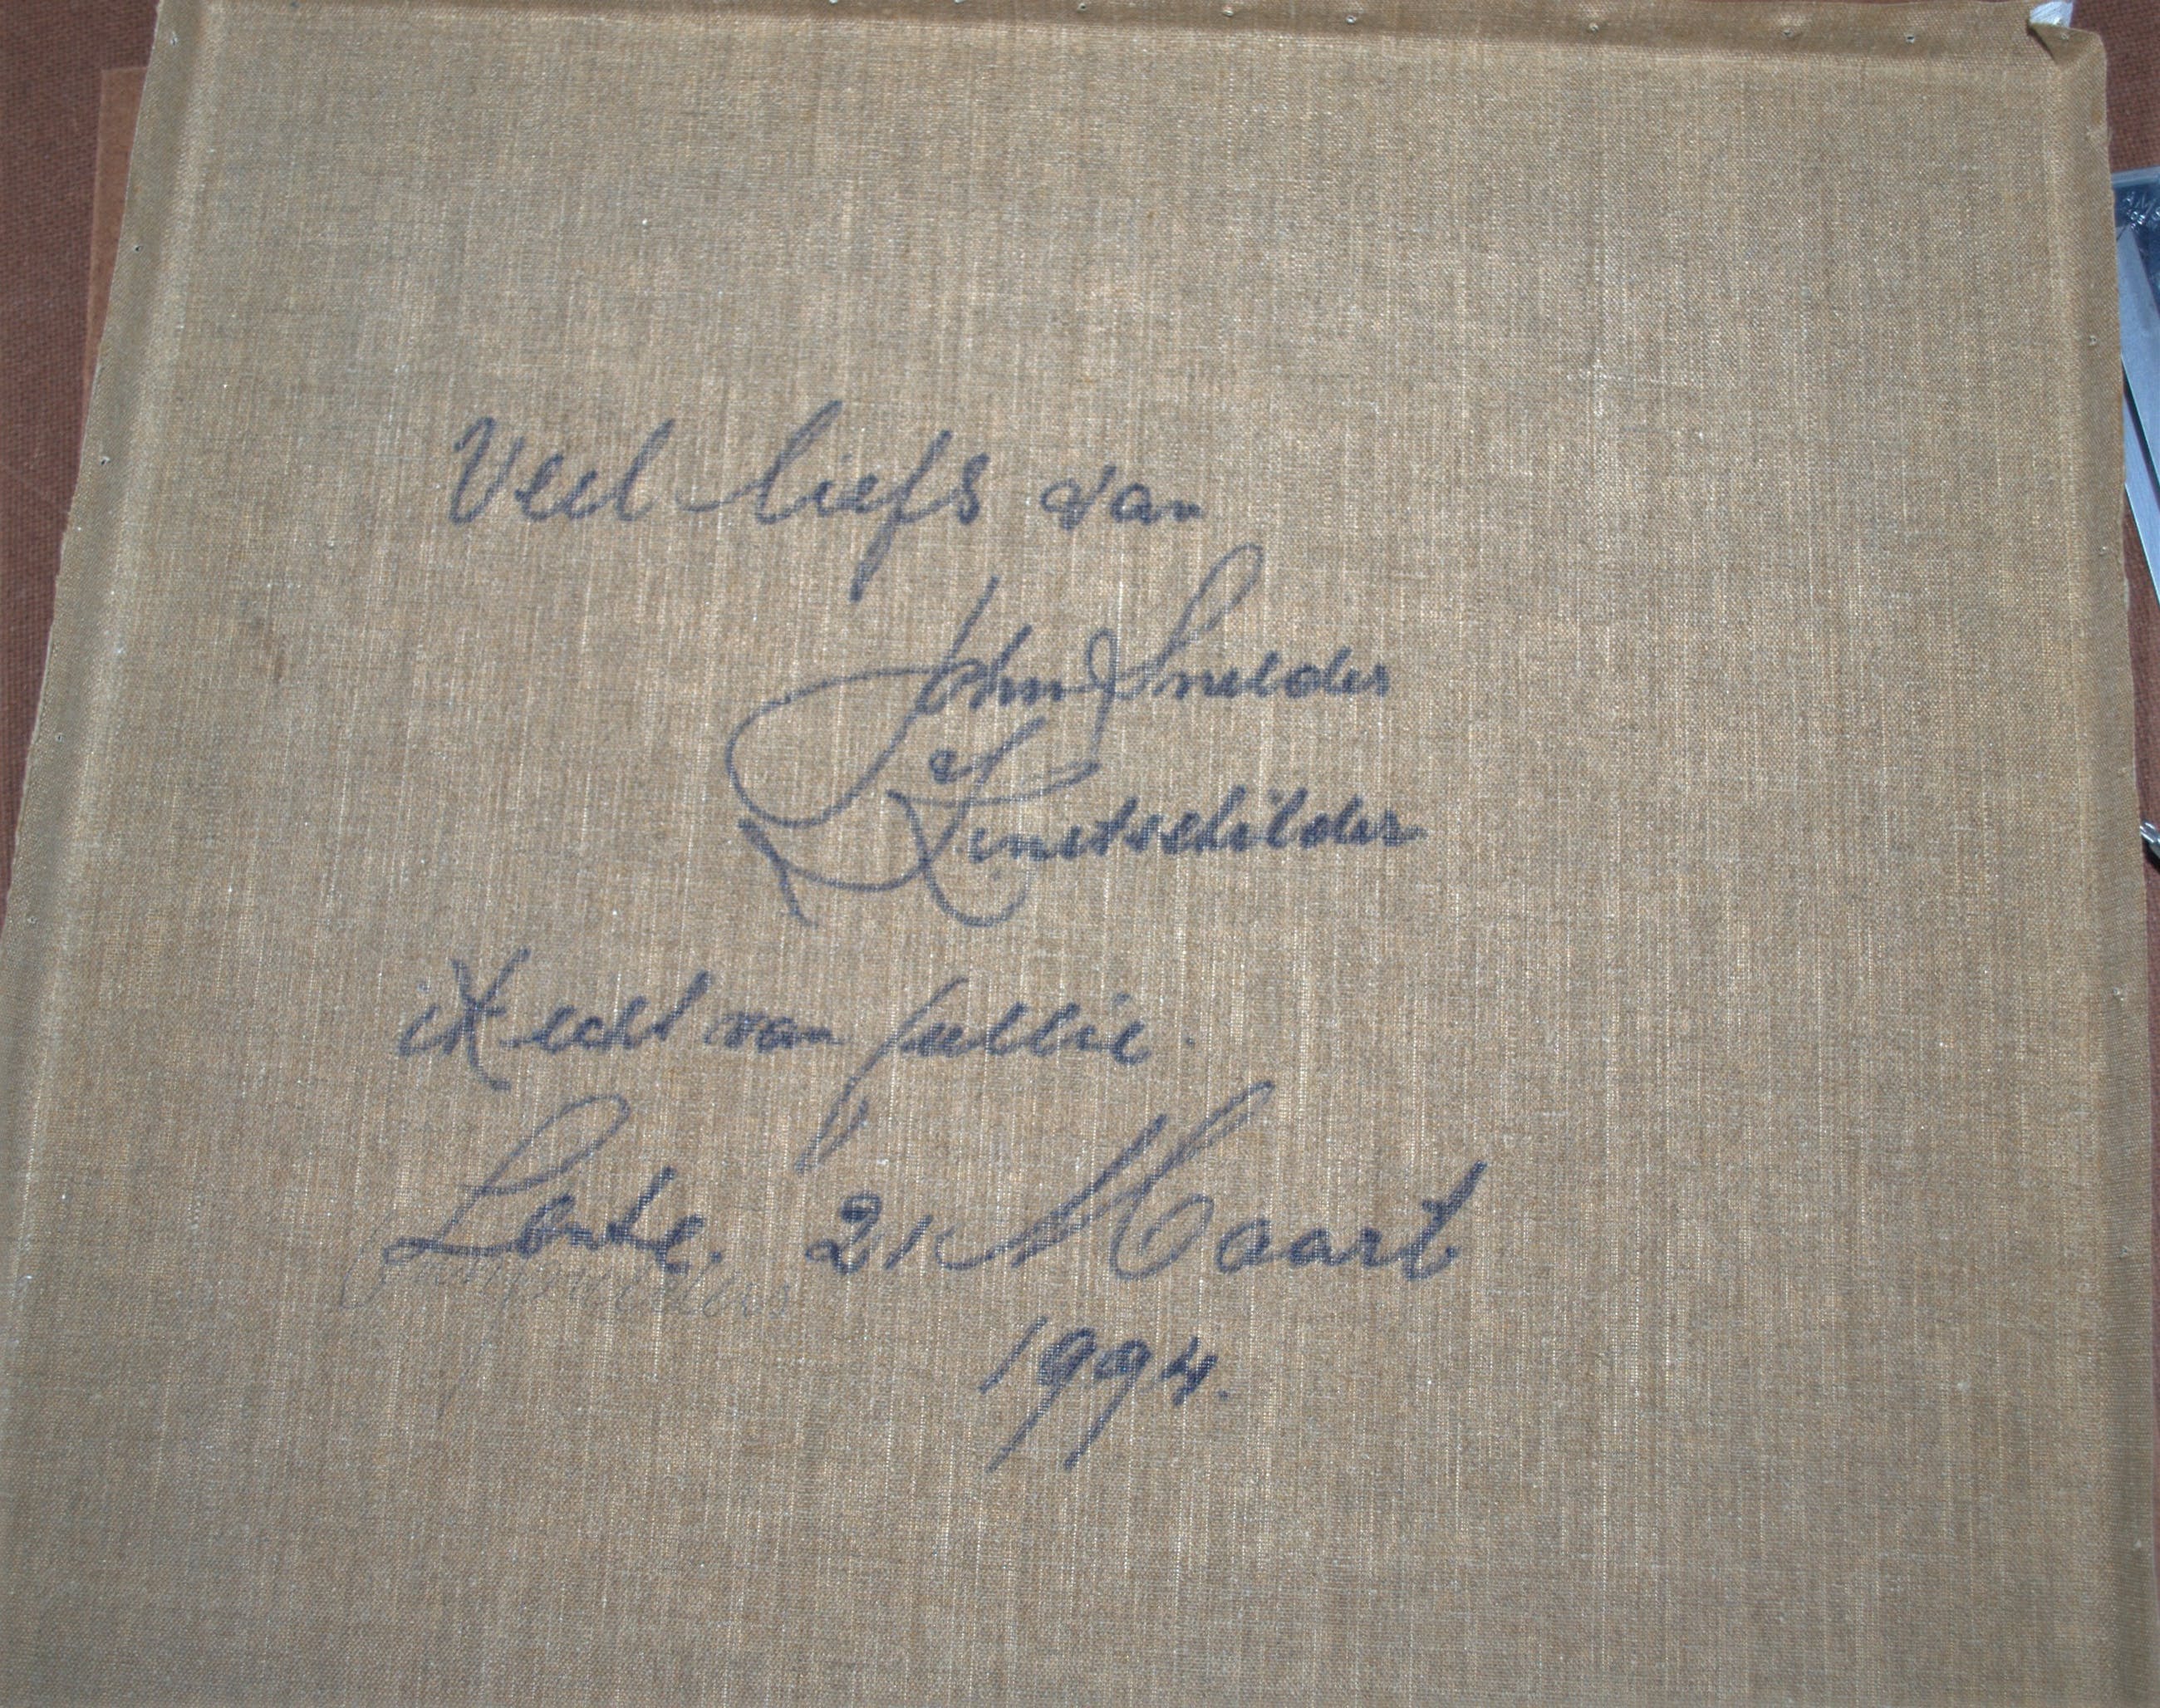 Veel liefs van
John Snelder
of
Kunstschilder
ik echt van jullie.
Lente. 21 Maart
1994.